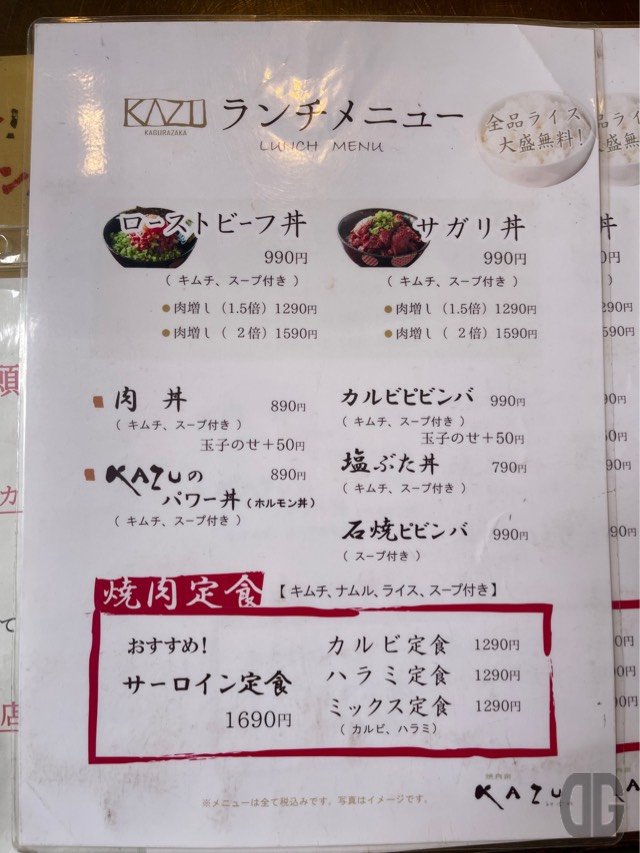 KAZU
KAGURAZAKA
ランチメニュー
LUNCH MENU
全品ライス
大盛無料!
ローストビーフ丼
990円
( キムチ、スープ付き )
●肉増し(1.5倍)1290円
●肉増し( 2倍)1590円
サガリ丼
990円
( キムチ、スープ付き )
●肉増し(1.5倍)1290円
●肉増し( 2倍)1590円
肉 丼 890円
( キムチ、スープ付き )
玉子のせ+50円
KAZUの
パワー丼(ホルモン丼) 890円
( キムチ、スープ付き )
カルビピビンバ 990円
( キムチ、スープ付き )
玉子のせ+50円
塩ぶた丼 790円
( キムチ、スープ付き )
石焼ビビンバ 990円
( スープ付き )
焼肉定食 【キムチ、ナムル、ライス、スープ付き】
おすすめ!
サーロイン定食
1690円
カルビ定食 1290円
ハラミ定食 1290円
ミックス定食 1290円
( カルビ、ハラミ)
※メニューは全て税込みです。写真はイメージです。
KAZU
DG